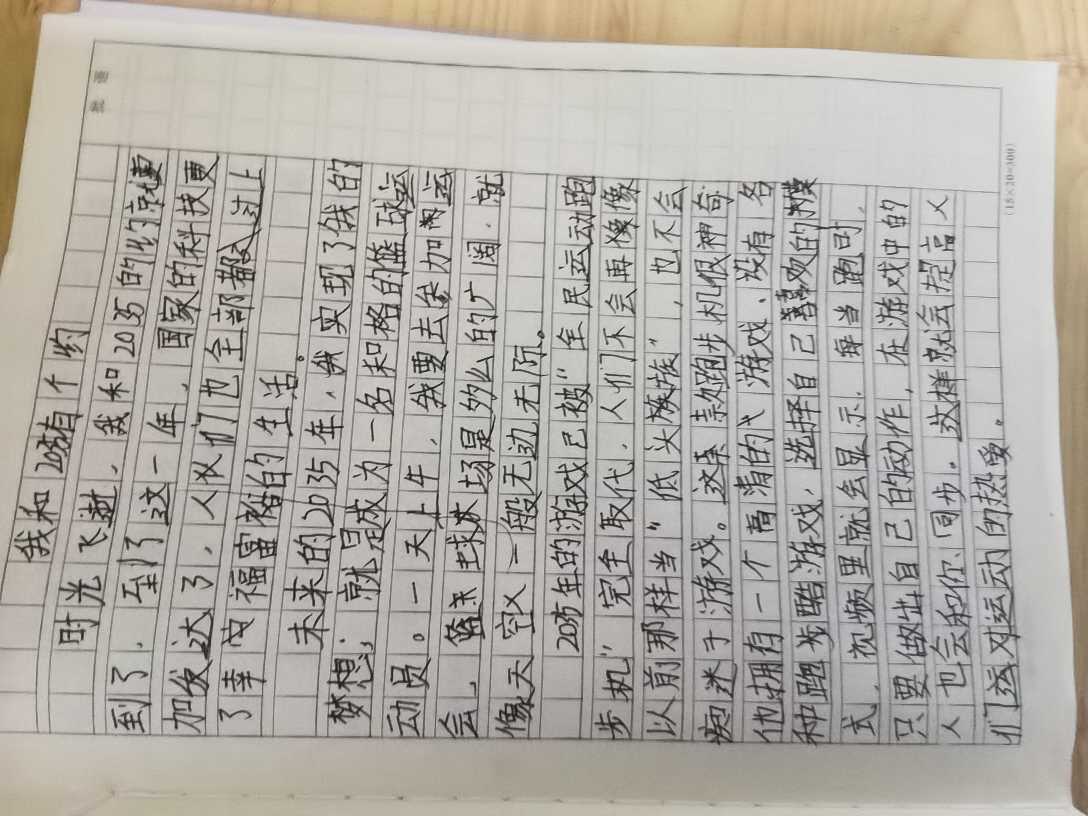 我和2035有个约
时光飞逝，我和2035的约就要
到了，至了这一年，国家的科技更
加发达了，人仪们也全部都过上
了幸安福富裕的生活。
未来的2035年，我实现了我的
梦想；就是成为一名和格的篮球运
动员。一天上午，我要去参加奥运
会，篮球场是多么的广阔，就
像天空一般无边无际。
2035年的游戏已被“全民运动跑
步机”完全取代，人们不会再像
以前那样当“低头族”，也不会
痴迷于游戏。这款跑步机很神奇
他拥有一个高清的游戏、设有各
种跑步酷游戏，选择自己喜欢的模
式，视频里就会显示，每当跑时，
只要做出自己的动作，在游戏中的
人也会和你同步。这样就会提高人
们运对运动的热爱。
(15×20=300)